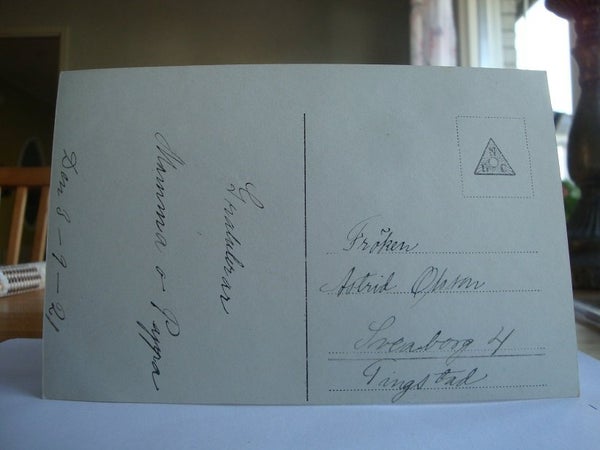 Gratulerar
Mamma o Pappa
Den 8-9-21
Fröken
Astrid Olsson
Sveaborg 4
Tingstad